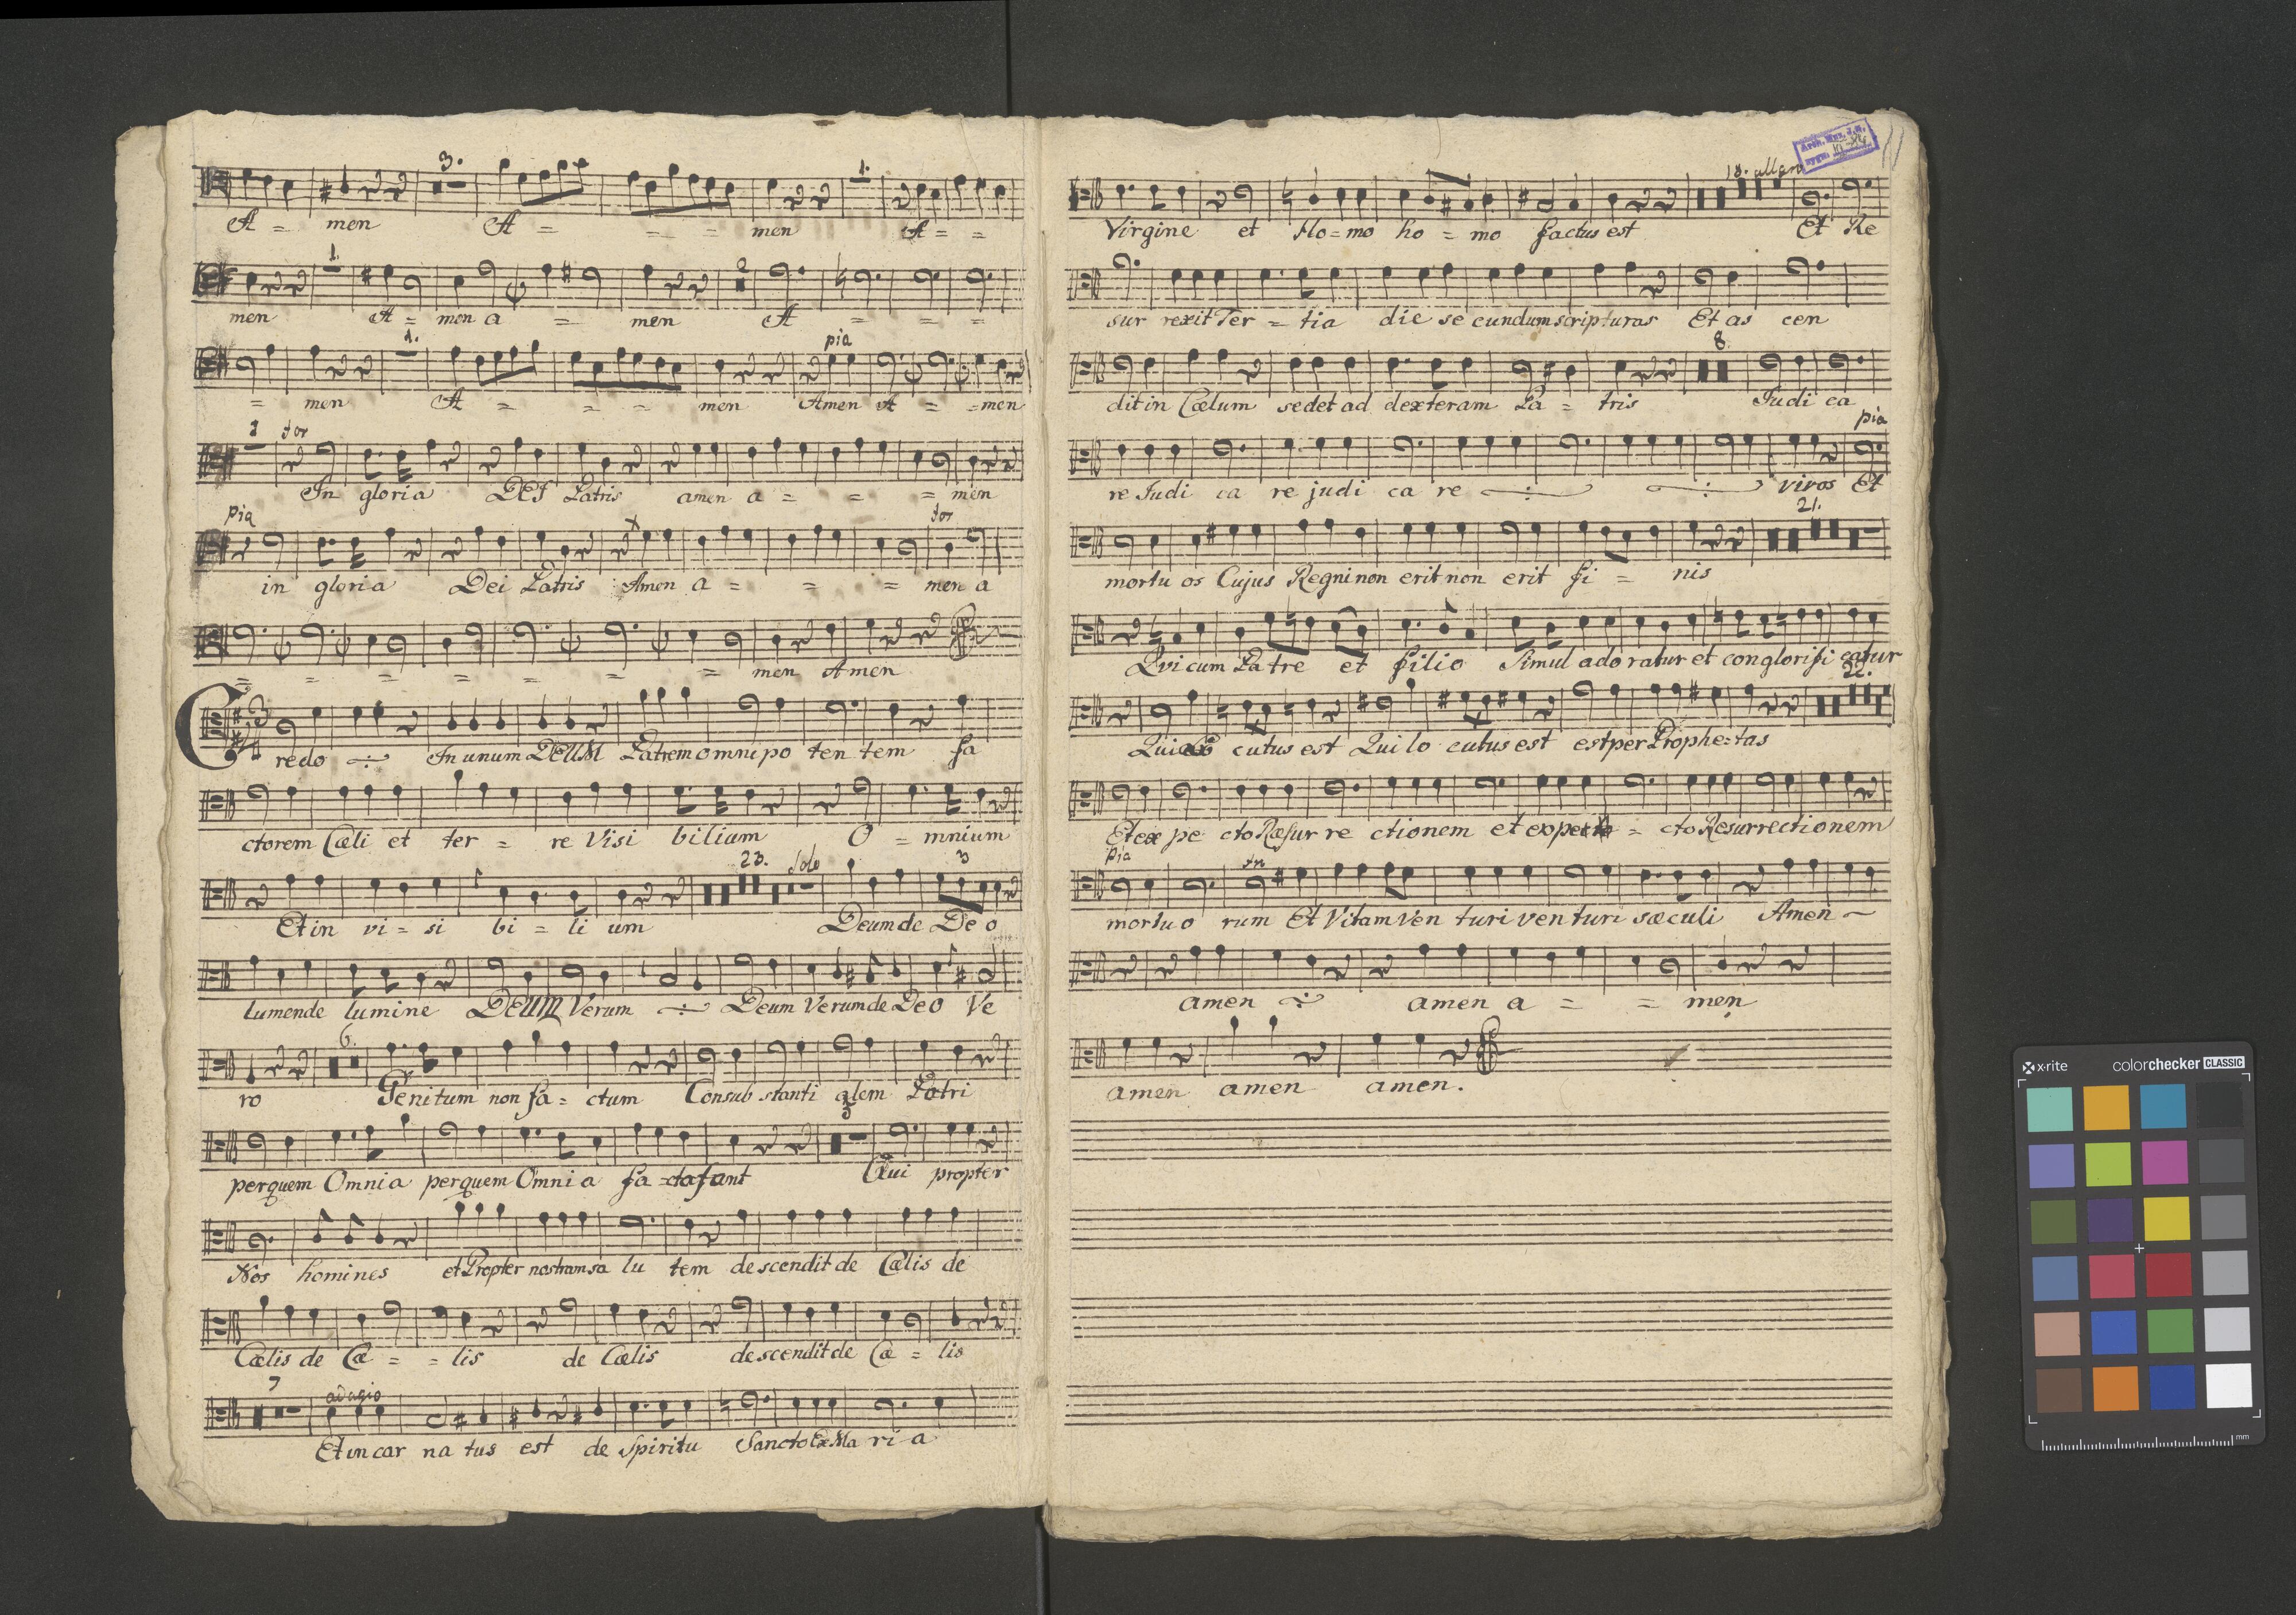 3. 1.
A = men A = = = men A = =
1. 2
men A = men a = men A = = =
1. pia
= men A = = = men Amen A = = men
1 for
In gloria DEI Patris amen a = = = men
pia for
in gloria Dei Patris Amen a = = = men a
= = = = = = = men Amen
3/4
Credo ÷ In unum DEUM Patrem omnipo ten tem fa
ctorem Cæli et ter = re Visi bilium O = mnium
23. Solo 3
Et in vi = si bi = li um Deum de De o
lumende lumine DEUM Verum ÷ Deum Verum de Deo Ve
6.
ro Genitum non fa = ctum Consub stanti alem Patri
3
perquem Omnia perquem Omnia fa = cta sunt Qui propter
Nos homines et Propter nostram sa lu tem descendit de Cælis de
Cælis de Cæ = = lis de Cælis descendit de Cæ = lis
7 adagio
Et in car na tus est de Spiritu Sancto Ex Ma ri a
18.
Virgine et Ho = mo ho = mo factus est Et Re
sur rexit Ter = tia die se cundum scripturas Et as cen
8.
dit in Cælum sedet ad dexteram Pa = tris Iudi ca
pia
re Iudi ca re judi ca re ÷ ÷ vivos Et
21.
mortu os Cujus Regni non erit non erit fi = nis
Qvi cum Patre et filio Simul adoratur et conglorifi catur
22.
Qui cutus est Qui lo cutus est est per Prophe = tas
Et ex pe cto Resur re ctionem et expecta = cto Resurrectionem
pia
mortuo rum Et Vitam Ven turi ven turi sæculi Amen ~
amen ÷ amen a = = men
amen amen amen.